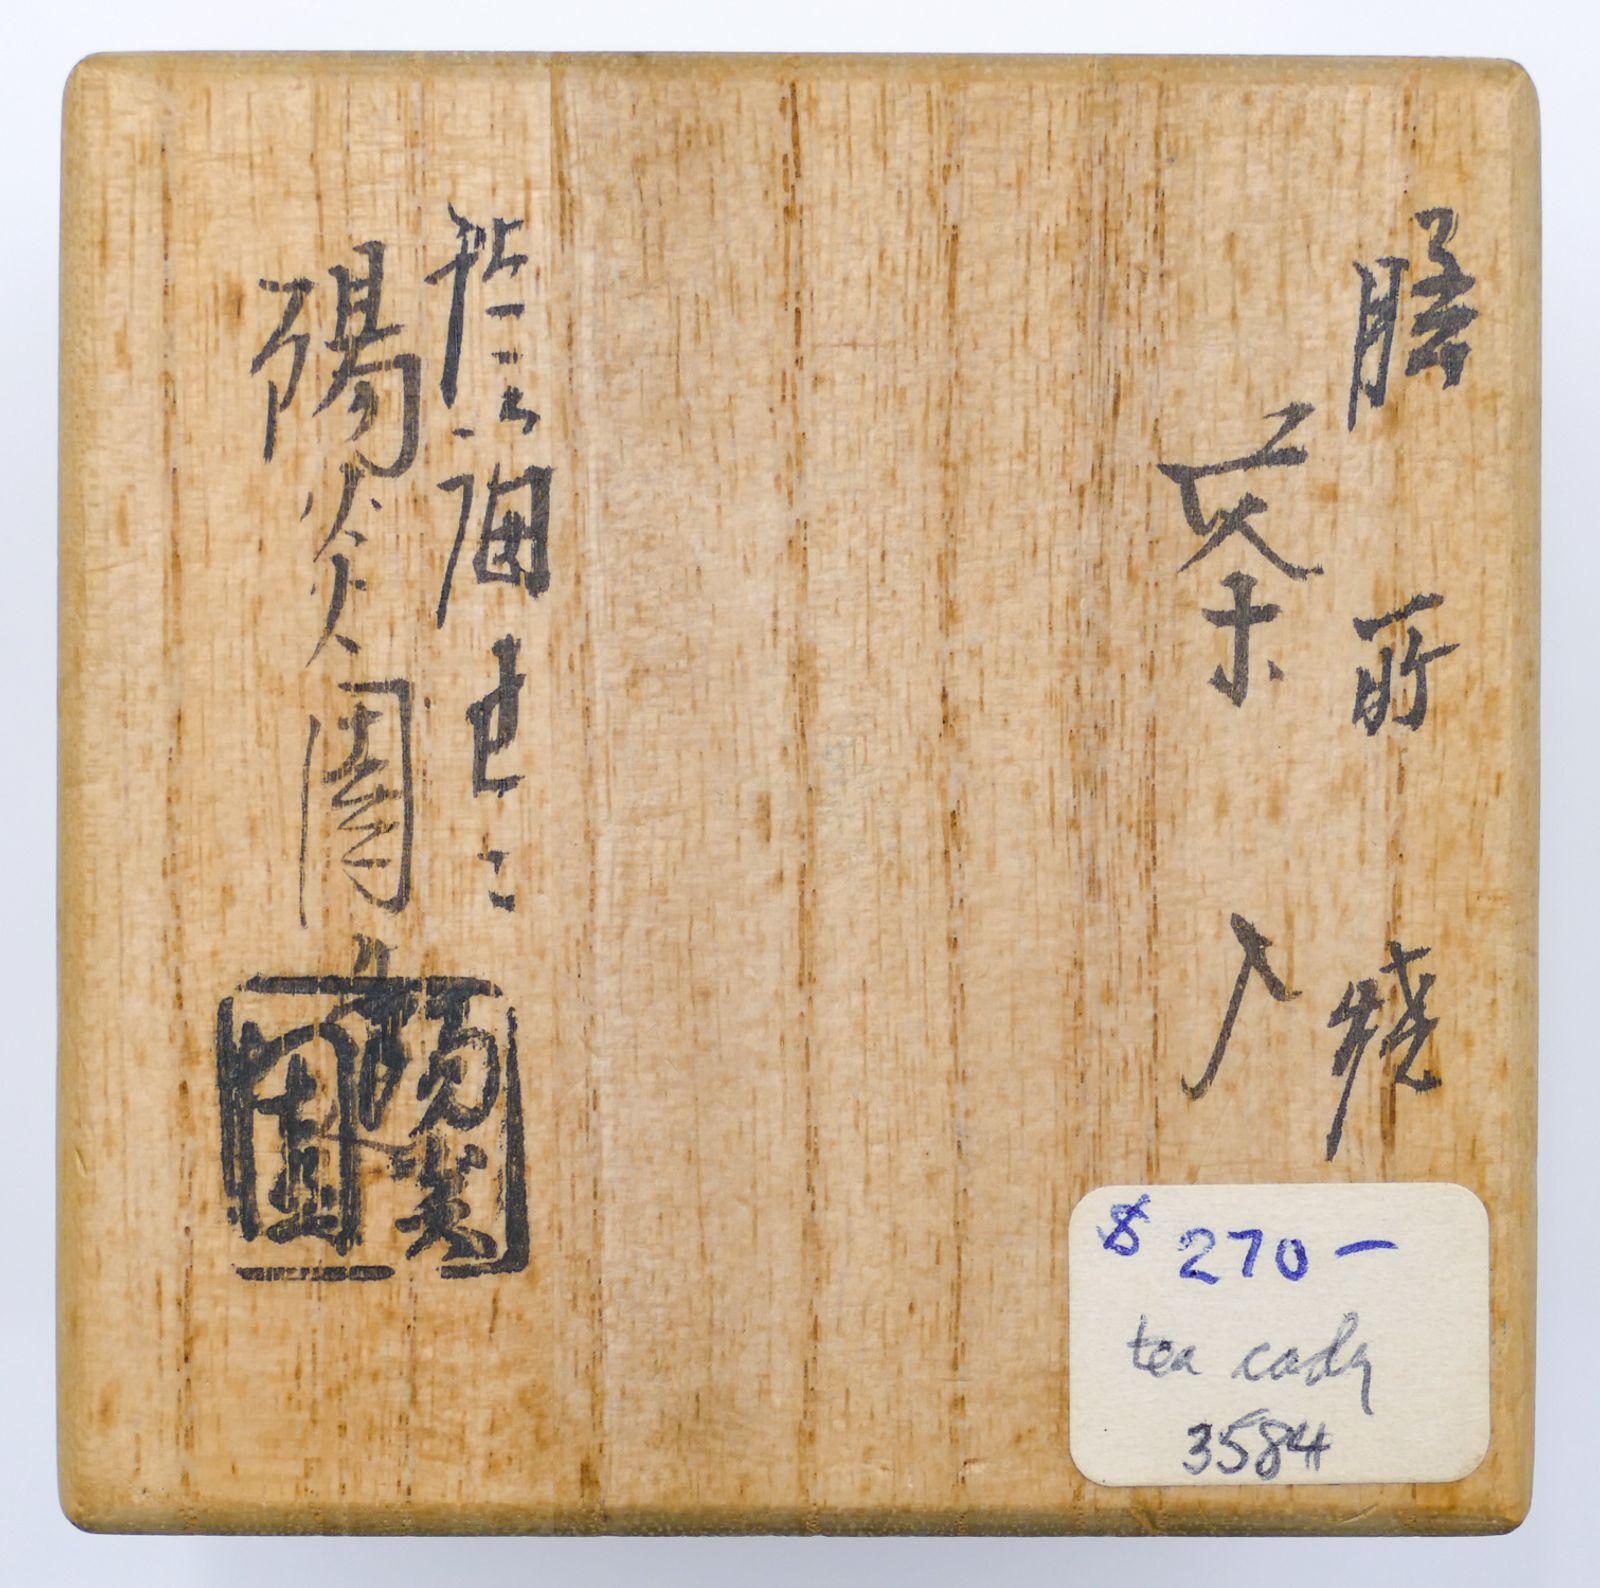 膳所焼
茶入
陽炎園
陽炎園
$ 270-
tea cady
3584